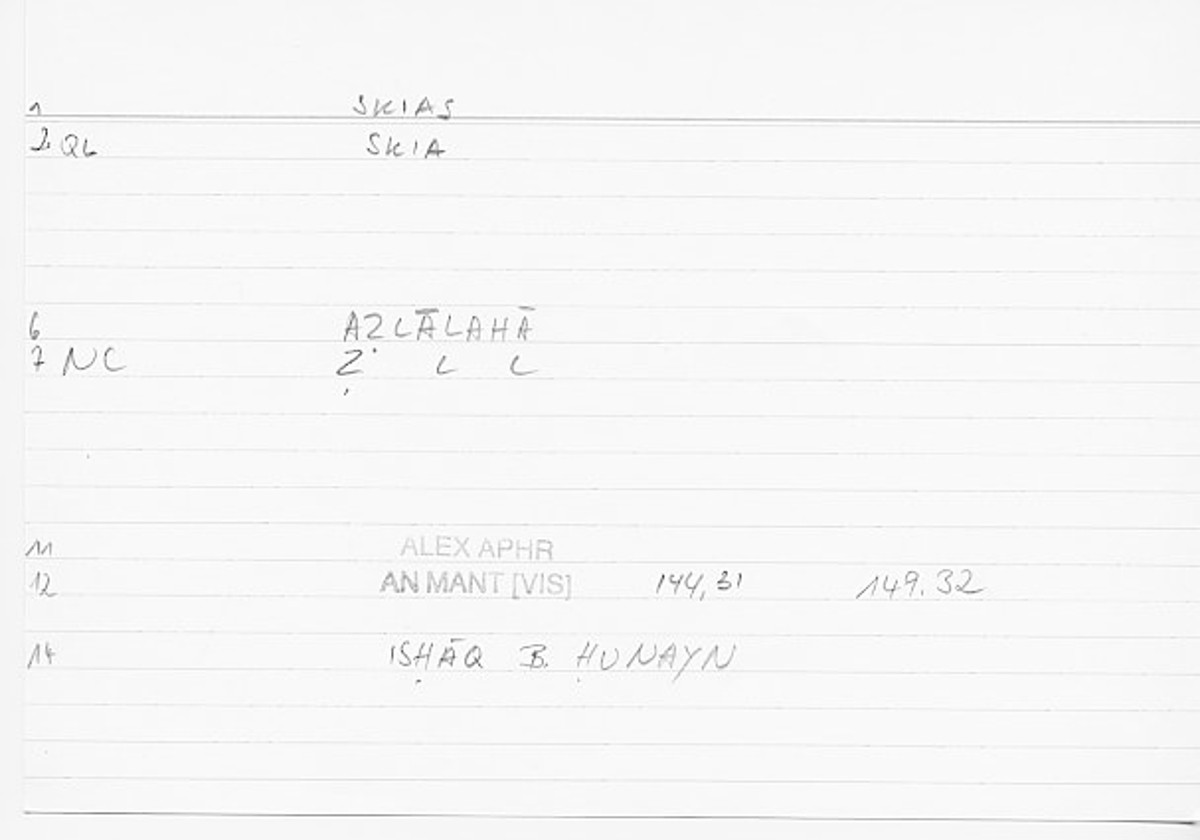 1 SKIAS
2. QL SKIA
6 AẒLĀLAHĀ
7 NC Ẓ L L
11 ALEX APHR
12 AN MANT [VIS] 144,31 149.32
14 ISḤĀQ B. ḤUNAYN